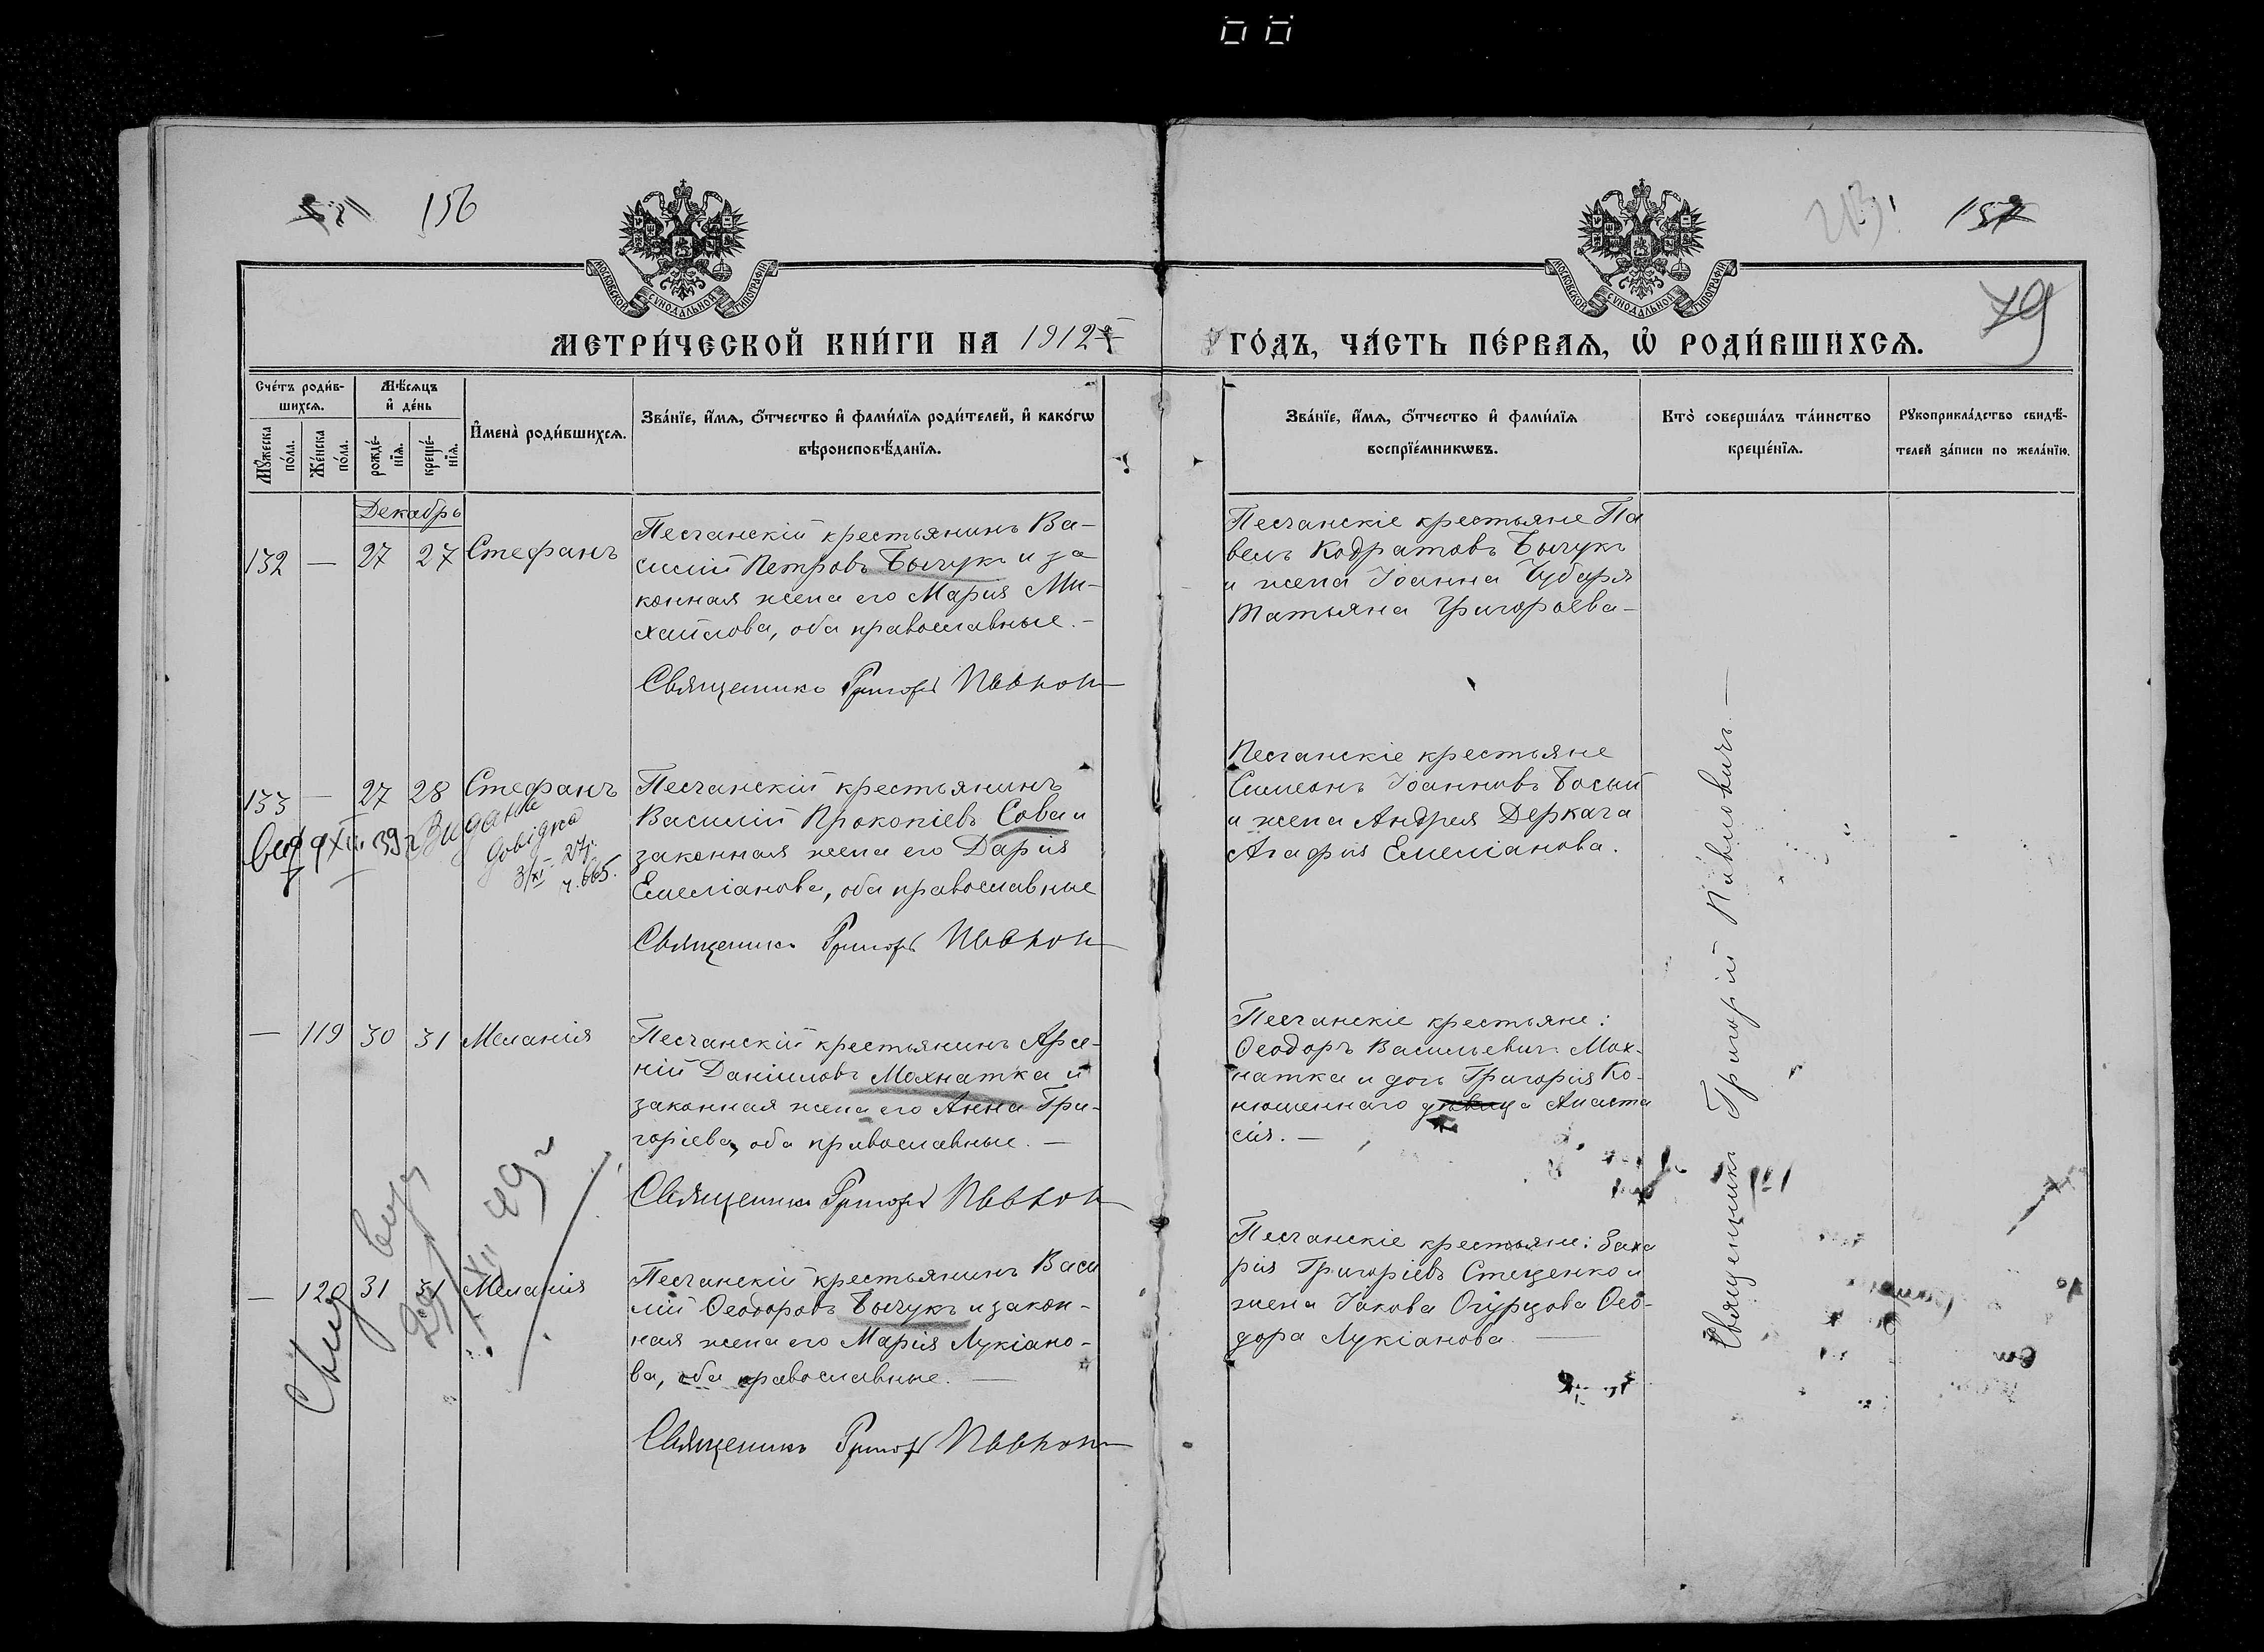 156
157
79
МОСКОВСКОЙ СУНОДАЛЬНОЙ ТИПОГРАФІИ
МОСКОВСКОЙ СУНОДАЛЬНОЙ ТИПОГРАФІИ
МЕТРИ́ЧЕСКОЙ КНИ́ГИ НА 1912
ГО́ДЪ, ЧА́СТЬ ПЕ́РВАѦ, Ѡ҆ РОДИ́ВШИХСѦ.
Сче́тъ роди́в-
шихсѧ.
Мꙋ́жеска
по́ла.
Же́нска
по́ла.
Мѣ́сѧцъ
и҆ де́нь
рожде́-
нїѧ.
креще́-
нїѧ.
И҆мена̀ роди́вшихсѧ.
Зва́нїе, и҆́мѧ, ѻ҆́тчество и҆ фами́лїѧ роди́телей, и҆ како́гѡ
вѣроисповѣ́данїѧ.
Зва́нїе, и҆́мѧ, ѻ҆́тчество и҆ фами́лїѧ
воспрїе́мникѡвъ.
Кто̀ соверша́лъ та́инство
креще́нїѧ.
Рꙋкоприкла́дство свидѣ́-
телей за́писи по жела́нїю.
Декабрь
132 — 27 27 Стефанъ
Песчанскій крестьянинъ Ва-
силій Петровъ Бычукъ и за
конная жена его Марія Ми-
хайлова, оба православные. —
Священникъ Григорій Павлов
Песчанскіе крестьяне Па
велъ Кодратовъ Бычукъ
и жена Іоанна Чубаря
Татьяна Григорьева —
133 — 27 28 Стефанъ
Видана
3/XI 27р.
ч. 665.
Песчанскій крестьянинъ
Василій Прокопіевъ Сова и
законная жена его Дарія
Емеліанова, оба православные
Священникъ Григорій Павлов
Песчанскіе крестьяне
Симеонъ Іоанновъ Босый
и жена Андрея Деркача
Агафія Емеліанова.
— 119 30 31 Меланія
Песчанскій крестьянинъ Арсе-
ній Даніиловъ Мохнатка и
законная жена его Анна Гри-
горіева, оба православные. —
Священникъ Григорій Павлов
Песчанскіе крестьяне:
Ѳеодоръ Васильевичъ Мох-
натка и дочь Григорія Ко-
нюшеннаго девица Анаста
сія. —
— 120 31 31 Меланія
Песчанскій крестьянинъ Васи
лій Ѳеодоровъ Бычукъ и закон-
ная жена его Марія Лукіано-
ва, оба православные. —
Священникъ Григорій Павлов
Песчанскіе крестьяне: Заха
рія Григоріевъ Стеценко и
жена Іакова Огурцова Ѳео-
дора Лукіанова —
Священникъ Григорій Павловичъ —